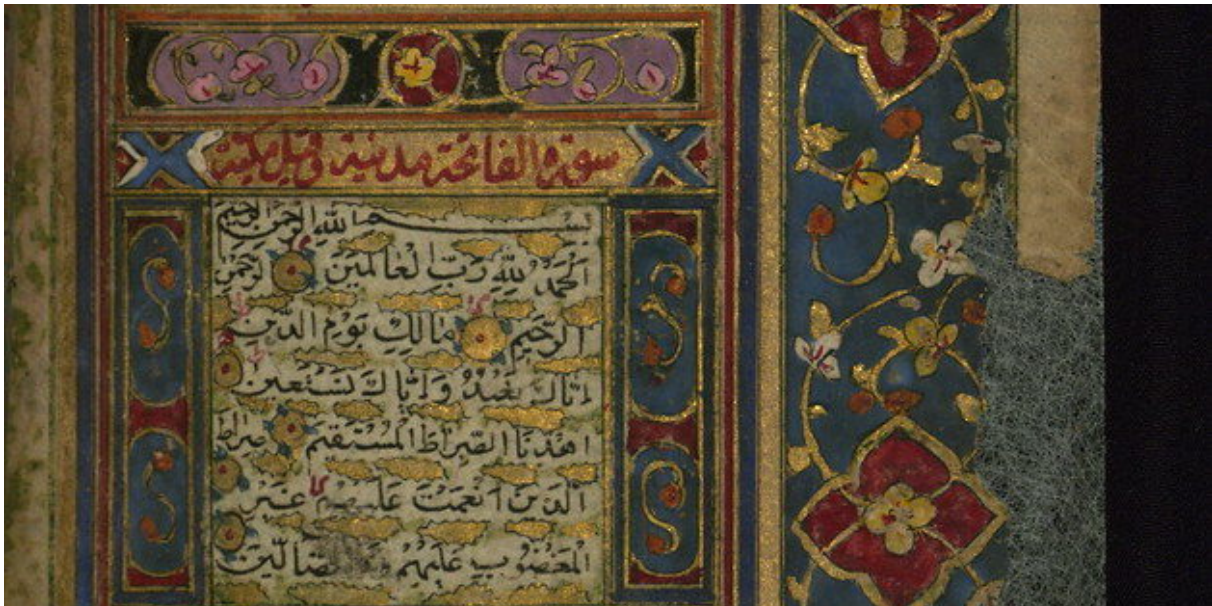 سورة الفاتحة مدنية وقيل مكية
بسم الله الرحمن الرحيم
الحمد لله رب العالمين الرحمن
الرحيم مالك يوم الدين
اياك نعبد واياك نستعين
اهدنا الصراط المستقيم صراط
الذين انعمت عليهم غير
المغضوب عليهم ضالين